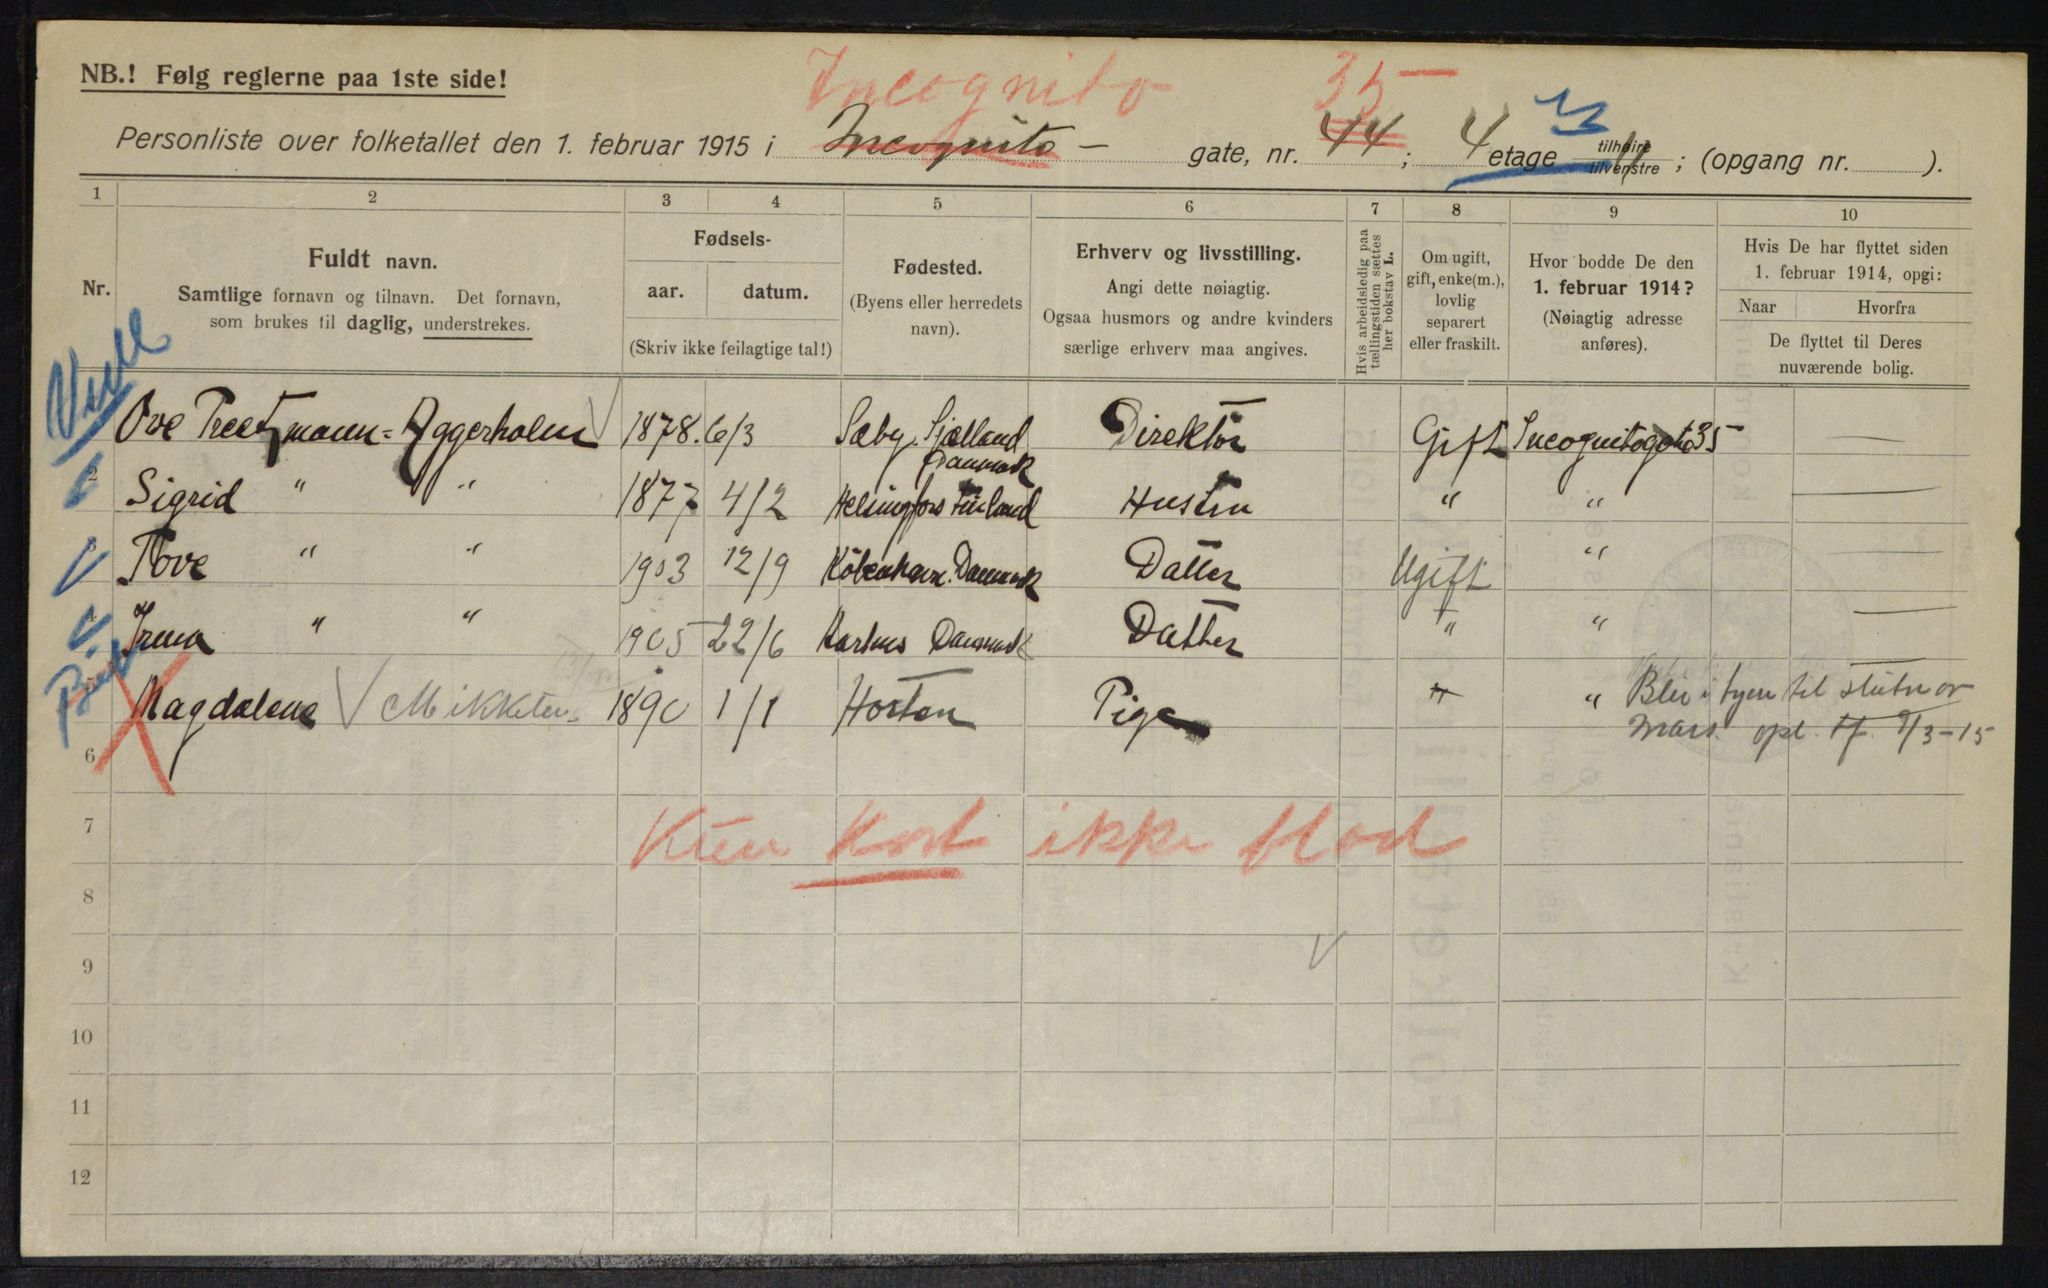 NB.! Følg reglerne paa 1ste side!
Incognito 35
Personliste over folketallet den 1. februar 1915 i Incognito - gate, nr. 44 ; 4 etage tilhøire tilvenstre ; (opgang nr. ).
1 2 3 4 5 6 7 8 9 10
Nr.
Fuldt navn.
Samtlige fornavn og tilnavn. Det fornavn,
som brukes til daglig, understrekes.
Fødsels-
aar. datum.
(Skriv ikke feilagtige tal!)
Fødested.
(Byens eller herredets
navn).
Erhverv og livsstilling.
Angi dette nøiagtig.
Ogsaa husmors og andre kvinders
særlige erhverv maa angives.
Hvis arbeidsledig paa
tællingstiden sættes
her bokstav L.
Om ugift,
gift, enke(m.),
lovlig
separert
eller fraskilt.
Hvor bodde De den
1. februar 1914?
(Nøiagtig adresse
anføres).
Hvis De har flyttet siden
1. februar 1914, opgi:
Naar Hvorfra
De flyttet til Deres
nuværende bolig.
Ove Preetzmann-Aggerholm 1878. 6/3 Sæby. Sjælland Danmark Direktör Gift Incognitogate 35 —
2 Sigrid " " 1877 4/2 Helsingfors Finland Hustru " " —
Tove " " 1903 12/9 København. Danmark Datter Ugift " —
4 Irena " " 1905 22/6 Aarhus Danmark Datter " " —
5 Magdalene Mikkelsen 1890 1/1 Horten Pige " " Blir i byen til slutn av
Mars. opl. 9/3-15
6
Kun Kort ikke blad
7
8
9
10
11
12